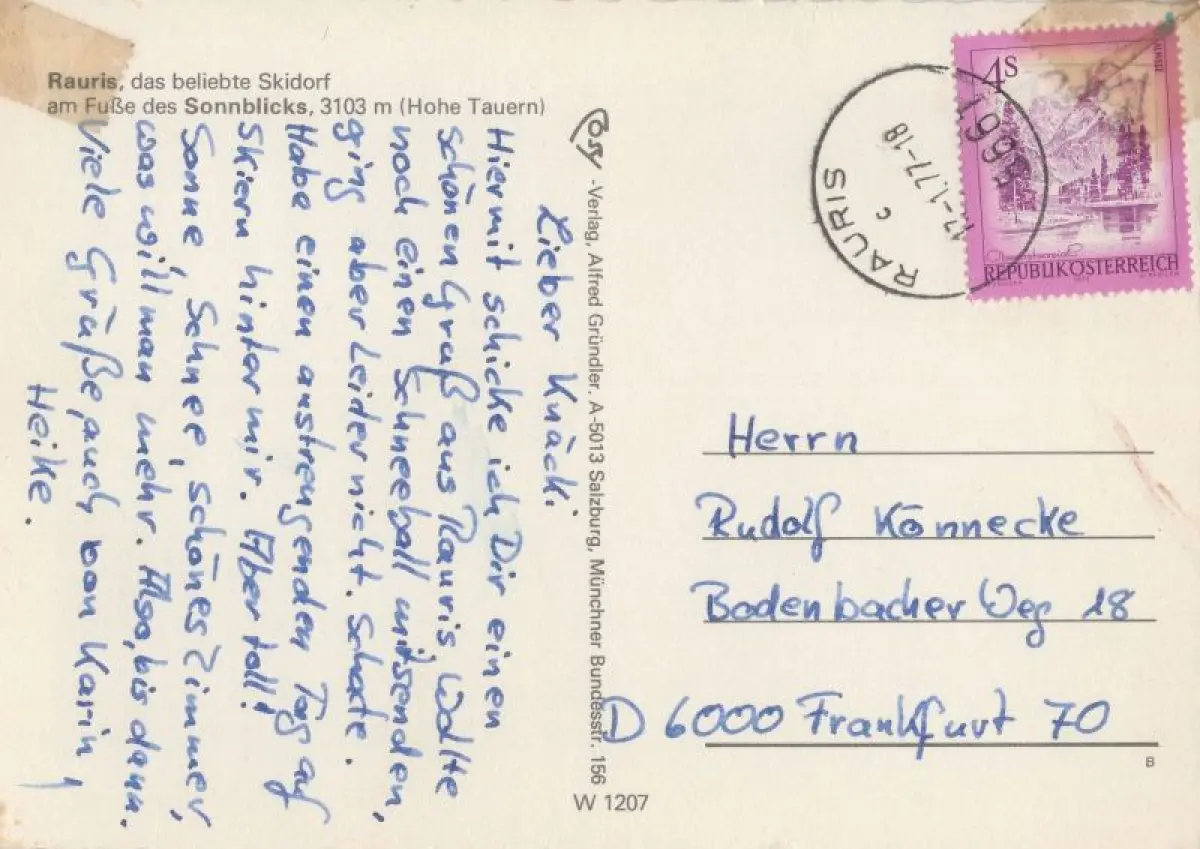 Rauris, das beliebte Skidorf
am Fuße des Sonnblicks, 3103 m (Hohe Tauern)
Lieber Knäcki
Hiermit schicke ich Dir einen
schönen Gruß aus Rauris, wollte
noch einen Schneeball mitsenden,
ging aber leider nicht. Schade.
Habe einen anstrengenden Tag auf
Skiern hinter mir. Aber toll!
Sonne, Schnee, schönes Zimmer,
was will man mehr. Also, bis dann.
Viele Grüße, auch von Karin,
Heike.
Cosy-Verlag, Alfred Gründler. A-5013 Salzburg, Münchner Bundesstr. 156
W 1207
4S
REPUBLIK ÖSTERREICH
5661 RAURIS
c
17-1.77-18
Herrn
Rudolf Könnecke
Bodenbacher Weg 18
D 6000 Frankfurt 70
B